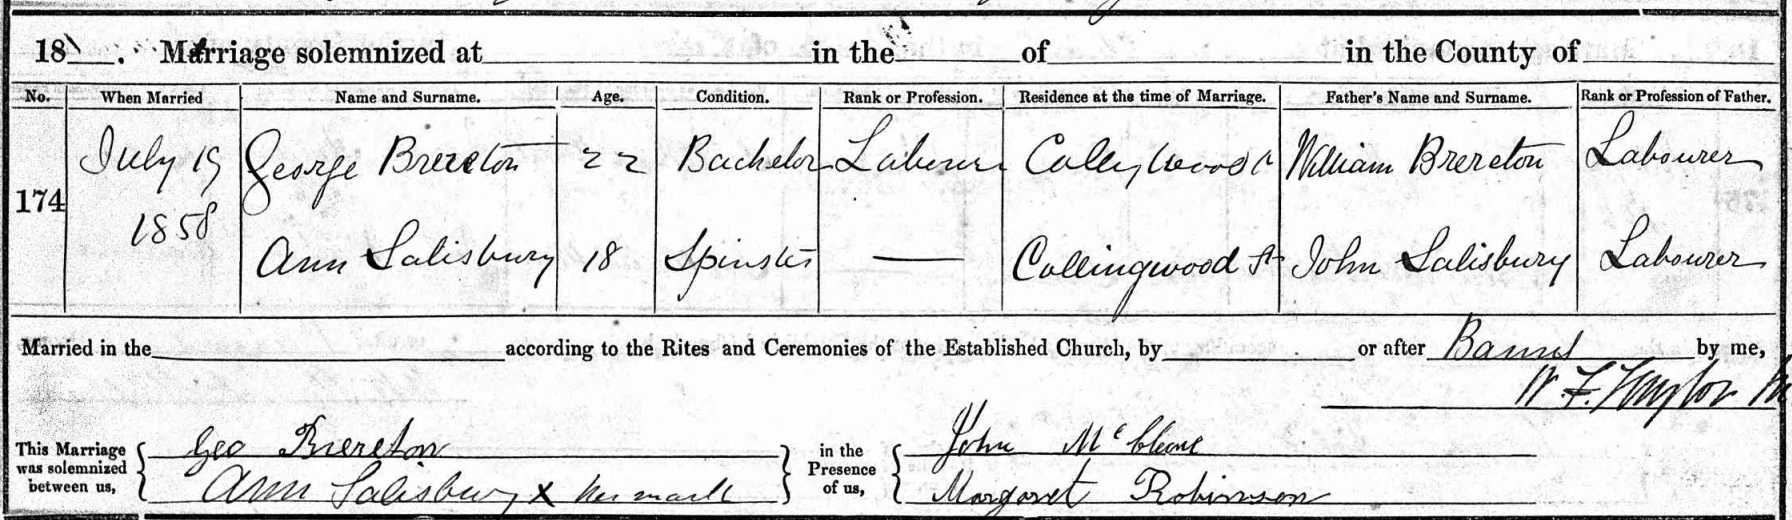 18__. Marriage solemnized at in the of in the County of
No. When Married Name and Surname. Age. Condition. Rank or Profession. Residence at the time of Marriage. Father's Name and Surname. Rank or Profession of Father.
174 July 19 1858 George Brereton 22 Bachelor Labourer William Brereton Labourer
Ann Salisbury 18 Spinster — Collingwood St John Salisbury Labourer
Married in the according to the Rites and Ceremonies of the Established Church, by or after Banns by me,
W. F. Taylor
This Marriage was solemnized between us, Geo Brereton in the Presence of us, John
Ann Salisbury x her mark Margaret Robinson